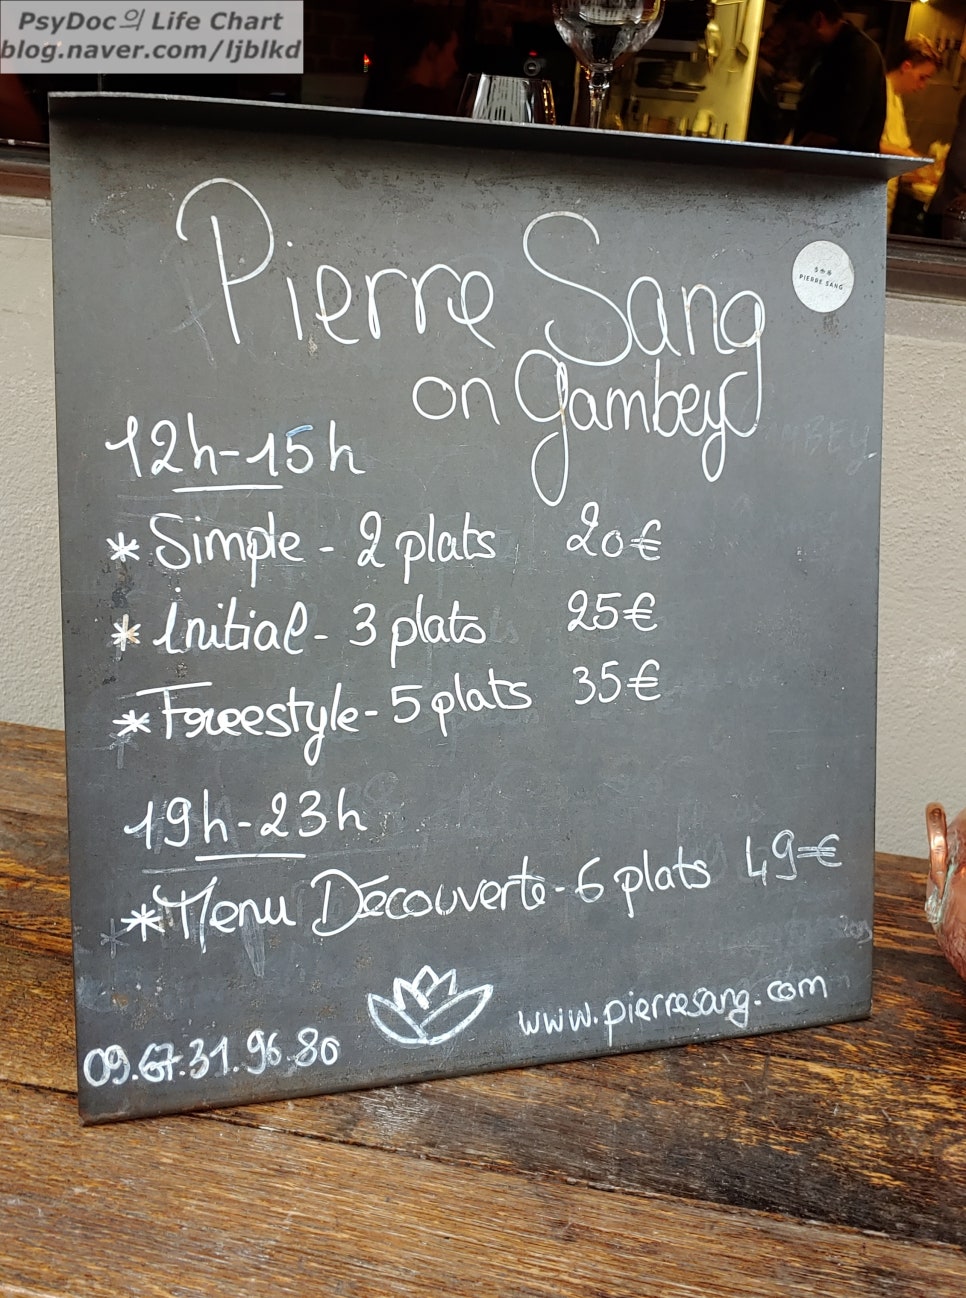 PsyDoc의 Life Chart
blog.naver.com/ljblkd
PIERRE SANG
Pierre Sang
on Gambey
12h-15h
* Simple - 2 plats 20€
* Initial - 3 plats 25€
* Freestyle - 5 plats 35€
19h-23h
* Menu Découverte - 6 plats 49€
www.pierresang.com
09.67.31.96.80